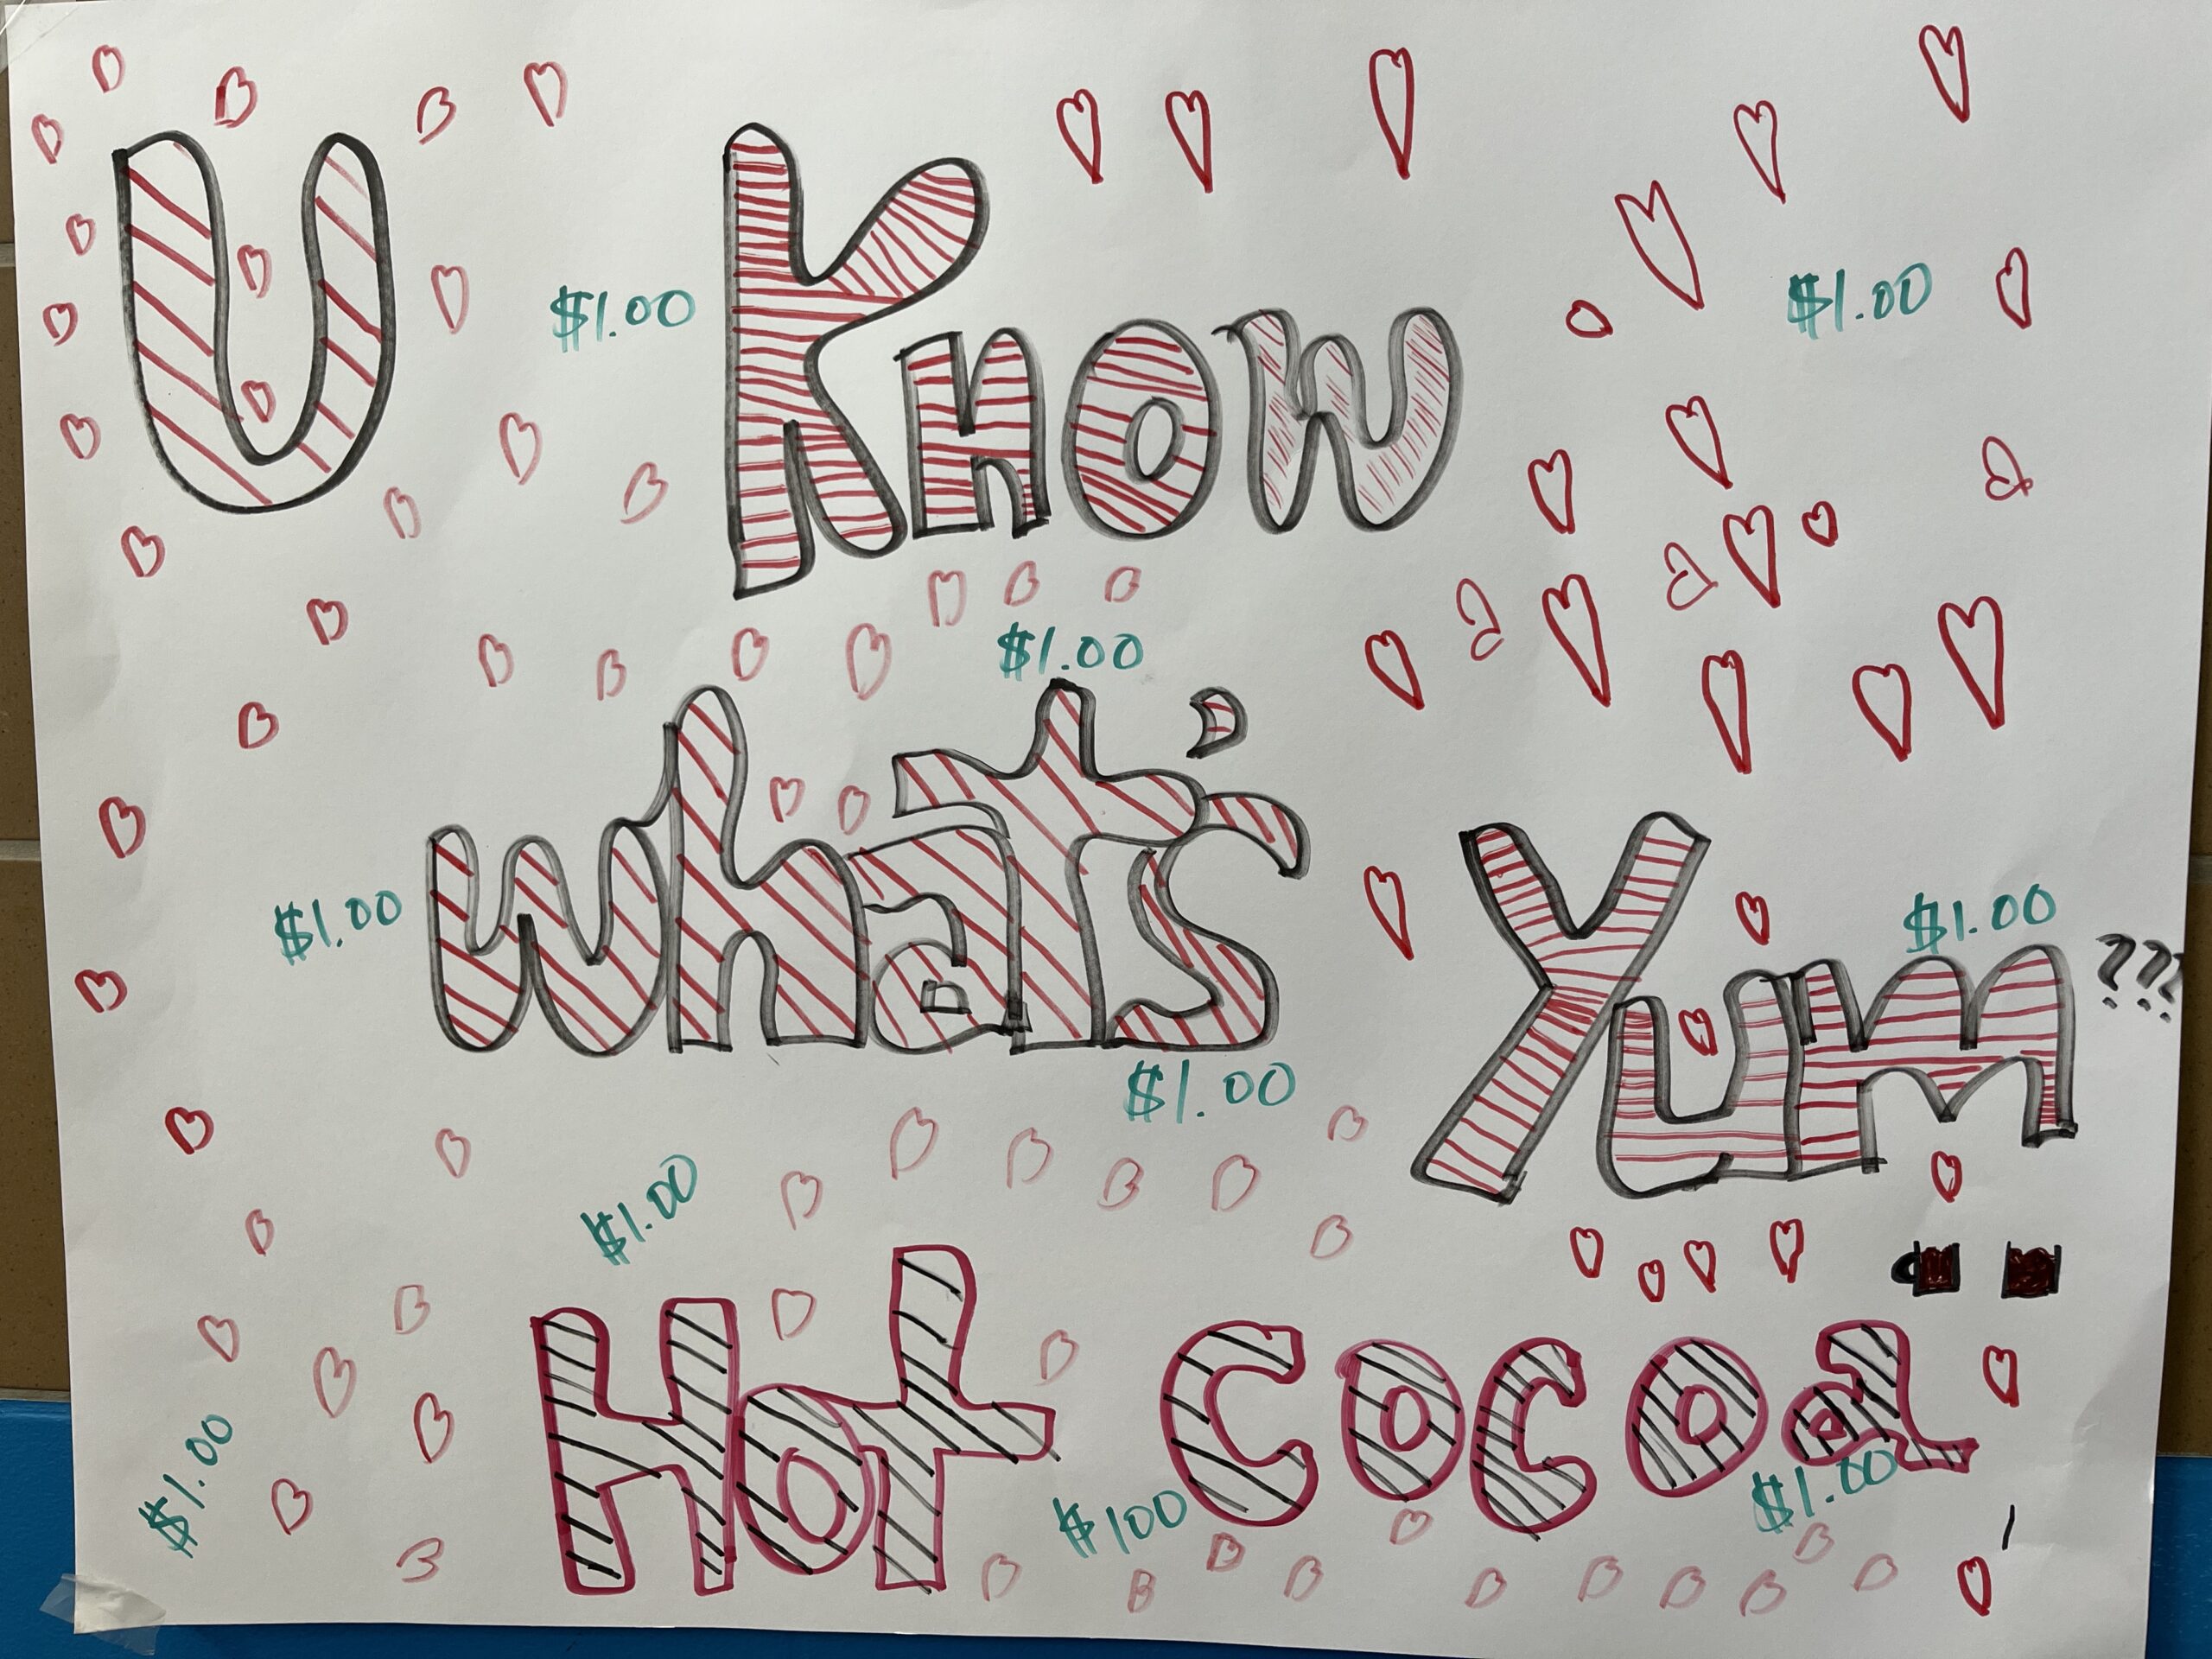 U Know
$1.00
$1.00
$1.00
What's
$1.00
$1.00
Yum???
$1.00
$1.00
Hot Cocoa
$1.00
$100
$1.00